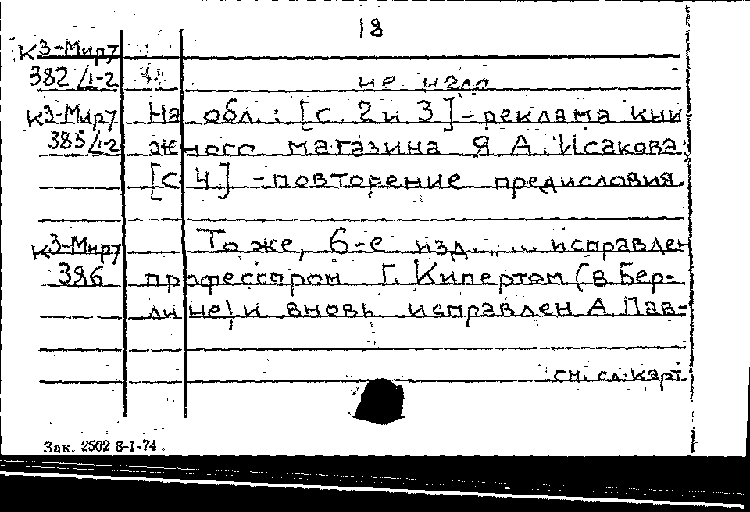 18
К3-Мир7
382/1-2
не надо
К3-Мир7 На обл.: [с. 2 и 3] - реклама кни
385/1-2 жного магазина Я А. Исакова.
[с 4.] - повторение предисловия.
К3-Мир7 То же, 6-е изд. .... исправлен
386 профессором Г. Кипертом (в Бер-
лине) и вновь исправлен А. Пав-
см. сл. карт.
Зак. 2502 8-I-74.